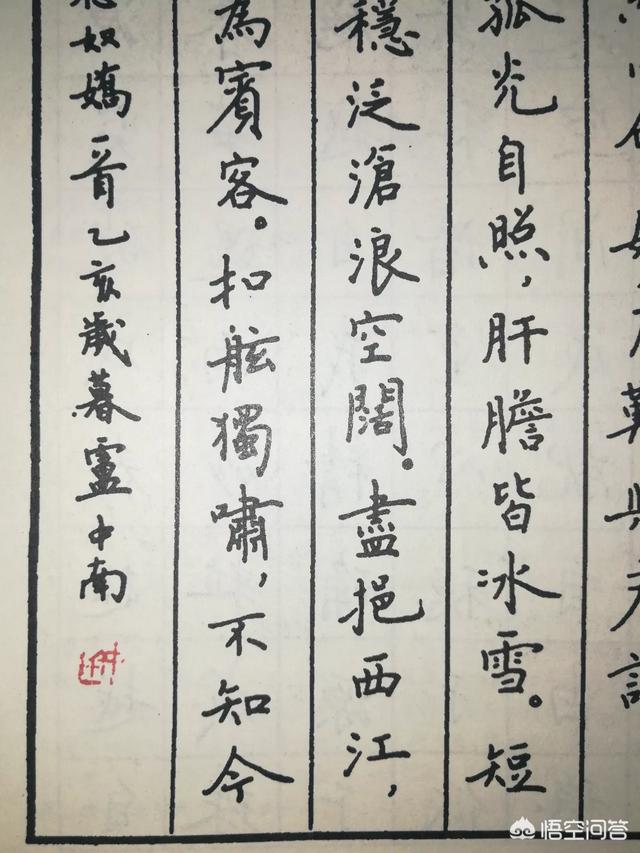 孤光自照，肝膽皆冰雪。短
穩泛滄浪空闊。盡挹西江，
為賓客。扣舷獨嘯，不知今
奴嬌一首乙亥歲暮盧中南
悟空问答